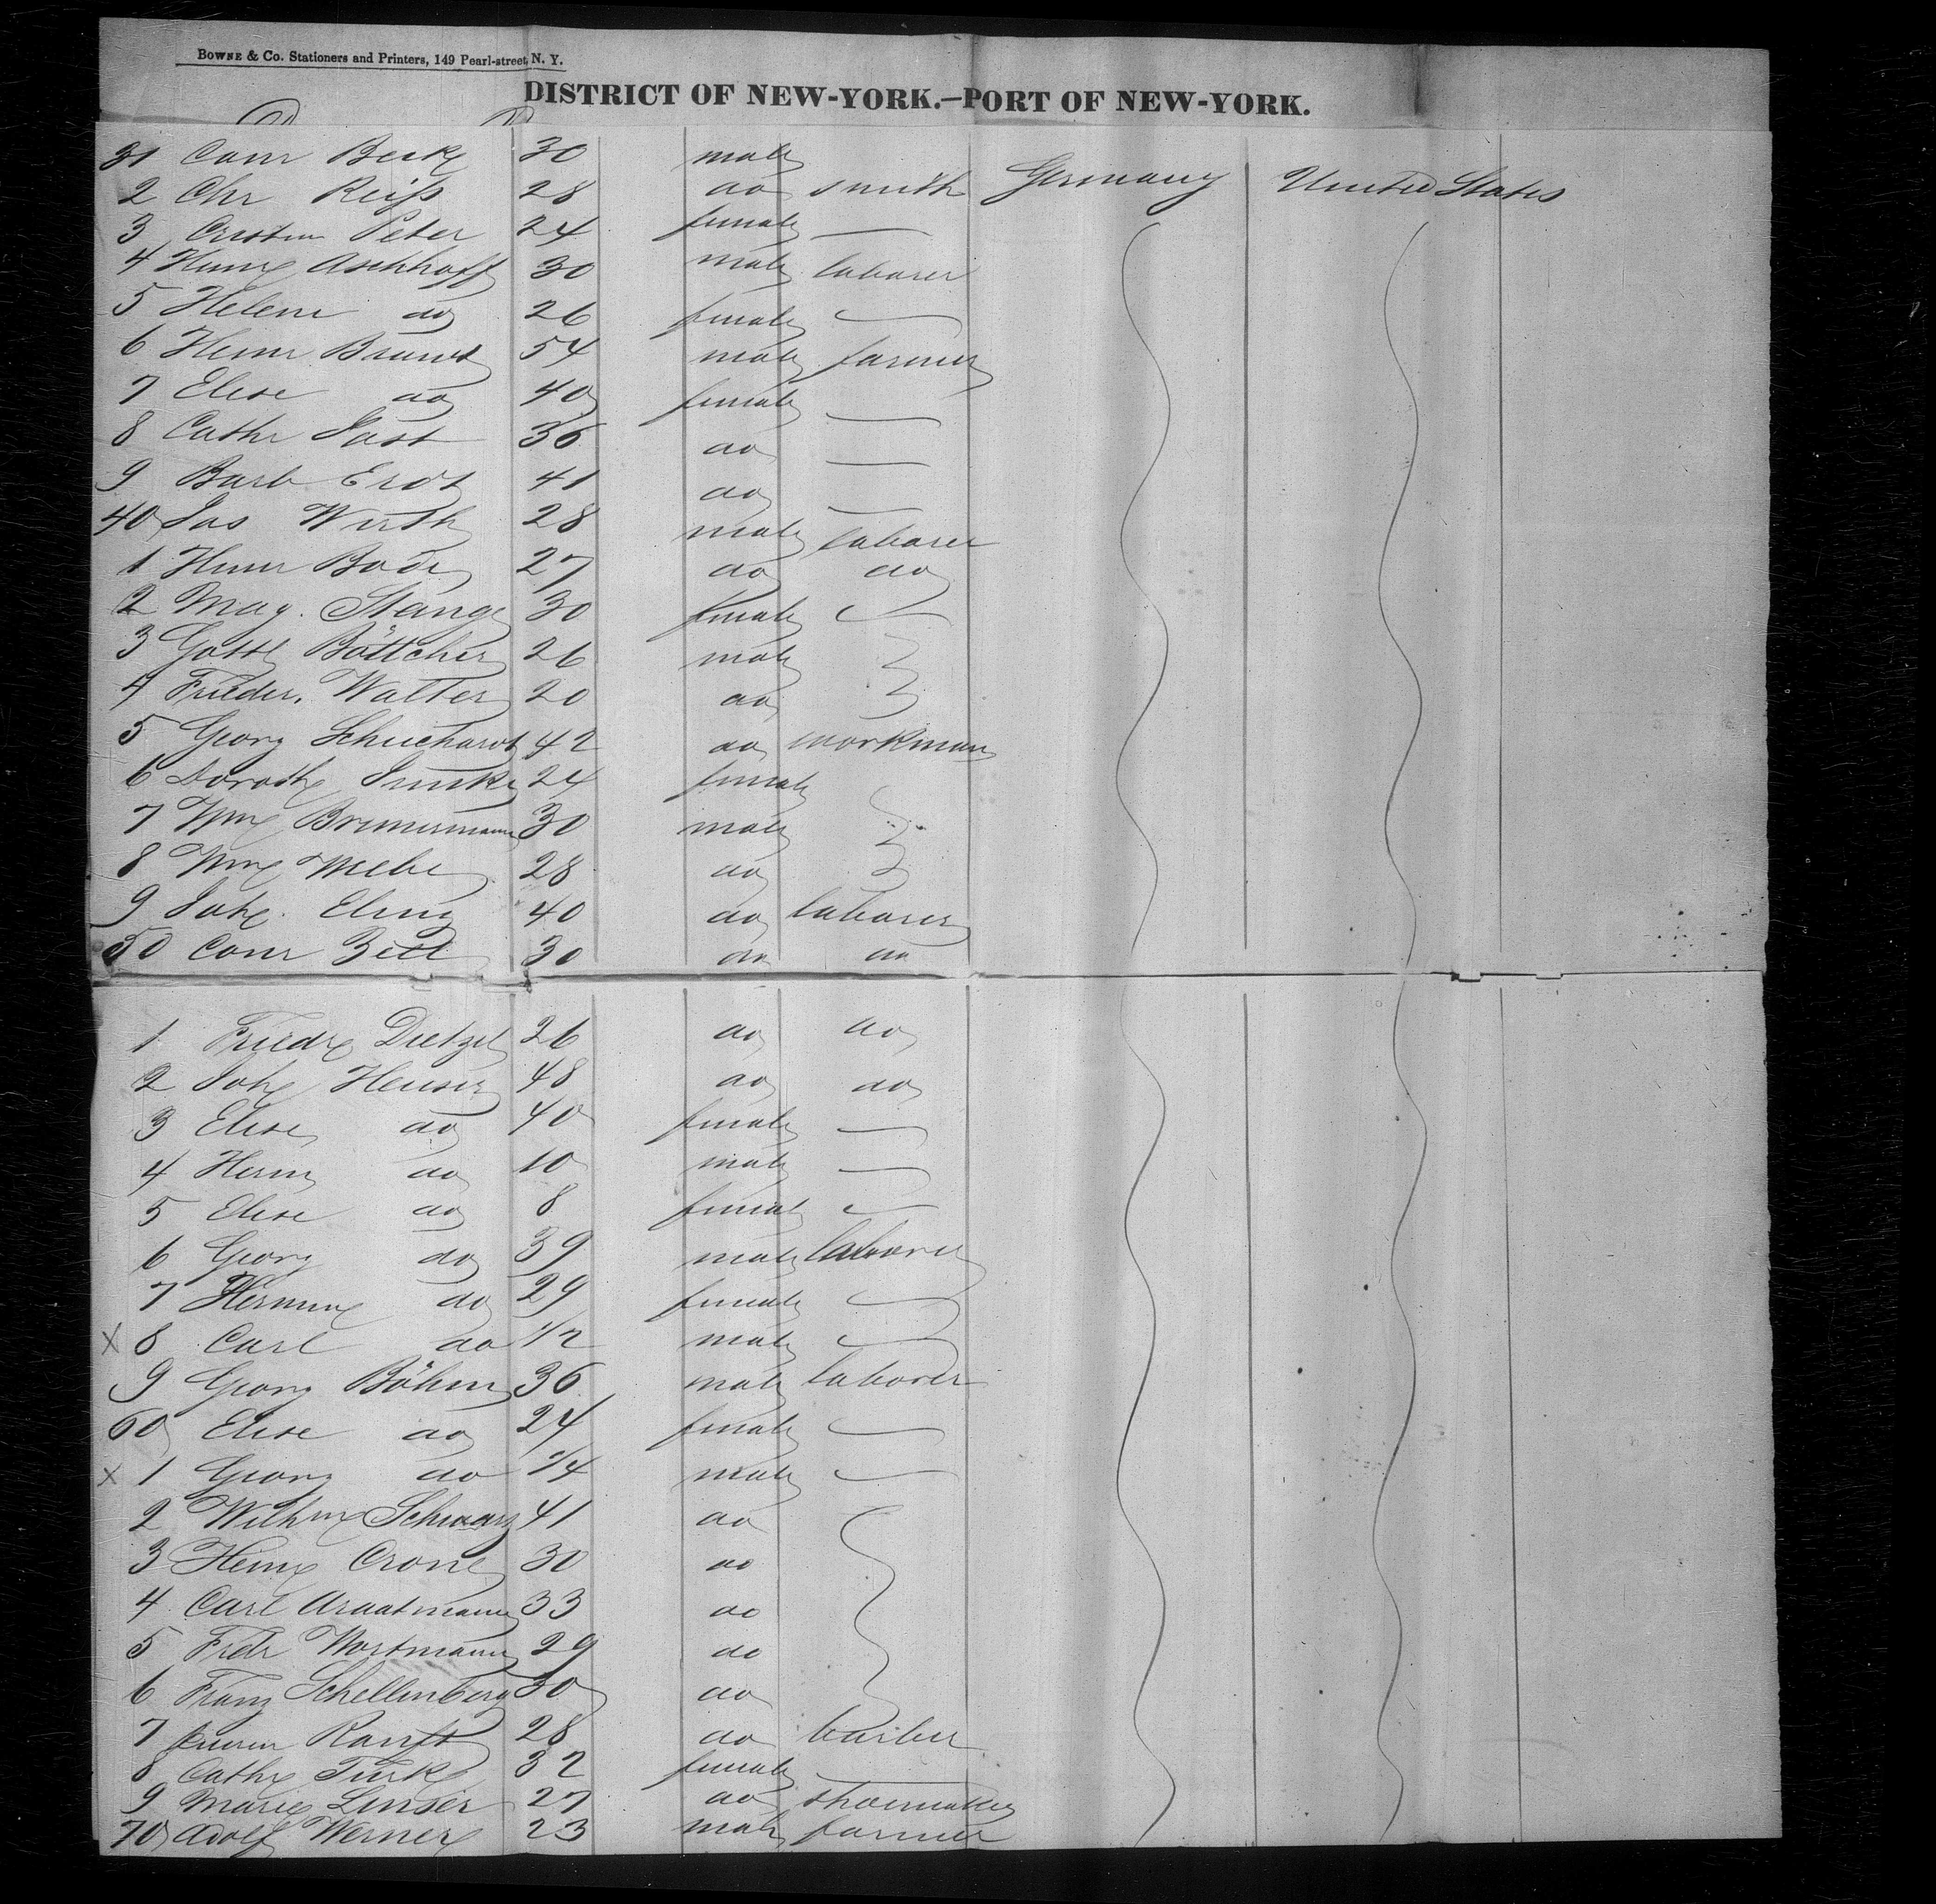 BOWNE & Co. Stationers and Printers, 149 Pearl-street, N. Y.
DISTRICT OF NEW-YORK.—PORT OF NEW-YORK.
31 Conr 30 male
2 Chr Reiß 28 do smith Germany United States
3 Peter 24 female
4 Heinr Aschhoff 30 male laborer
5 Helene do 26 female
6 Heinr Brandt 54 male farmer
7 Elise do 40 female
8 Cathr Jost 36 do
9 Barb Erdt 41 do
40 Jos Wirth 28 male laborer
1 Heinr Bode 27 do do
2 Mag. Stange 30 female
3 Gottl Böttcher 26 male
4 Frieder. Walter 20 do
5 Georg Schuchardt 42 do workman
6 Doroth 24 female
7 Wm 30 male
8 Wm 28 do
9 Joh. 40 do laborer
50 Conr Zell 30 do do
1 Friedr Dietzel 26 do do
2 Joh Heuser 48 do do
3 Elise do 40 female
4 Herm do 10 male
5 Elise do 8 female
6 Georg do 39 male laborer
7 Hermine do 29 female
X 8 Carl do 1/2 male
9 Georg Böhm 36 male laborer
60 Elise do 24 female
X 1 Georg do 1/4 male
2 Wilhm Schwarz 41 do
3 Heinr Crone 30 do
4 Carl 33 do
5 Fredr Wortmann 29 do
6 Franz Schellenberg 30 do
7 Ranft 28 do barber
8 Cathr Türk 32 female
9 Marie Linser 27 do shoemaker
70 Adolf Werner 23 male farmer